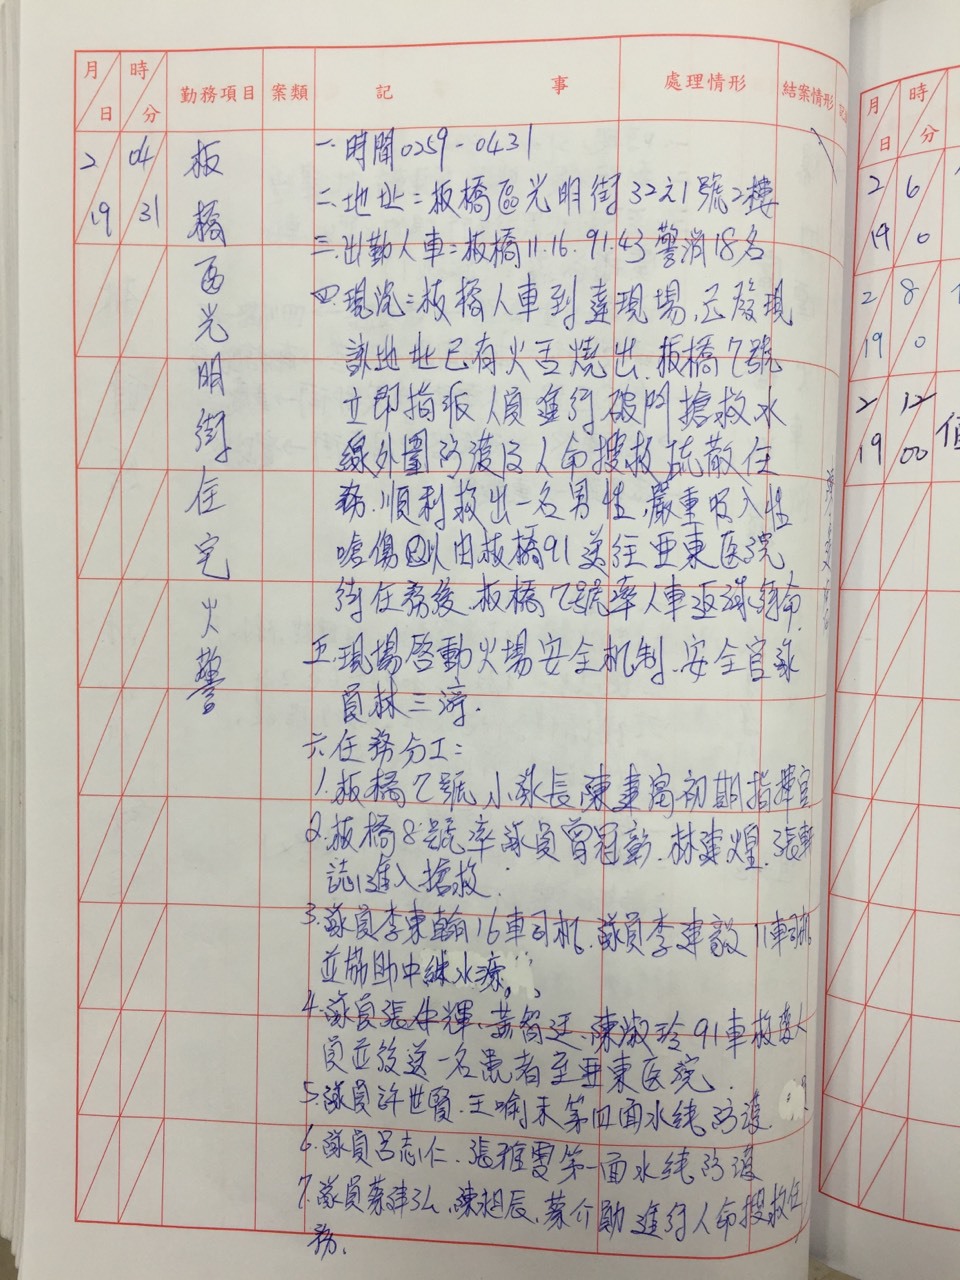 月 日 時 分 勤務項目 案類 記 事 處理情形 結案情形
2 19 04 31
板橋西光明街住宅火警
一.時間0259-0431
二.地址:板橋區光明街32之1號2樓
三.出勤人車:板橋11.16.91.43 警消18名
四.現況:板橋人車到達現場,已發現
該地址已有火舌燒出.板橋7號
立即指派人員進行破門搶救水
線外圍防護及人命搜救疏散任
務.順利救出一名男性,嚴重吸入性
嗆傷 以由板橋91送往亞東医院
待任務後.板橋7號率人車返隊
五.現場啓動火場安全机制.安全官隊
員林三
六.任務分工:
1.板橋7號 小隊長陳 初期指揮官
2.板橋8號率隊員曾冠彰.林 煌.張
誌進入搶救.
3.隊員李東翰16車司机.隊員李建毅11車司机
並協助中繼水源.
4.隊員張 輝.黃智 .陳淑玲91車救護人
員並後送一名患者至亞東医院.
5.隊員許世賢.王 第四面水線防護.
6.隊員呂志仁.張雅雯第一面水線防護
7.隊員蔡 弘.陳 辰.蔡介勛進行人命搜救任
務.
月 日 時 分
2 19 6 0
2 19 8 0
2 19 12 00 值